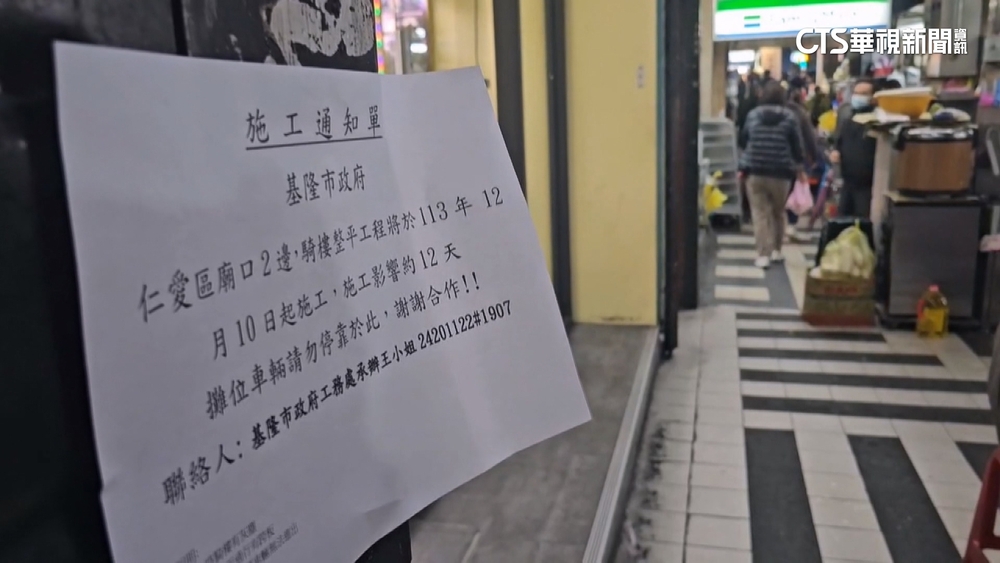 CTS華視新聞資訊
施工通知單
基隆市政府
仁愛區廟口2邊,騎樓整平工程將於113年12
月10日起施工,施工影響約12天
攤位車輛請勿停靠於此,謝謝合作!!
聯絡人:基隆市政府工務處承辦王小姐24201122#1907